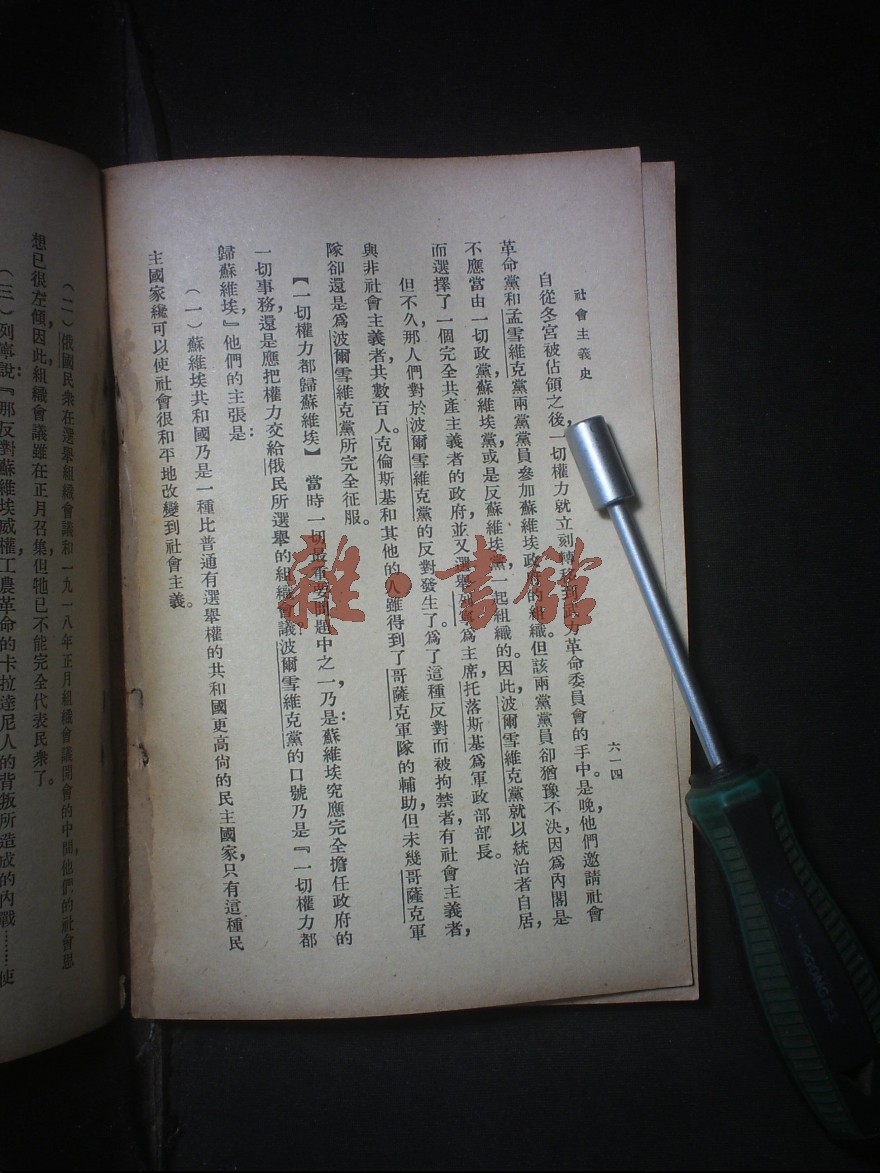 社會主義史
六一四
自從冬宮被佔領之後，一切權力就立刻轉移到
方革命委員會的手中。是晚他們邀請社會
革命黨和孟雪維克黨兩黨黨員參加蘇維埃政府的組織。但該兩黨黨員卻猶豫不決，因爲內閣是
不應當由一切政黨，蘇維埃黨，或是反蘇維埃黨一起組織的。因此，波爾雪維克黨就以統治者自居，
而選擇了一個完全共產主義者的政府，並又選舉列寧爲主席，托落斯基爲軍政部部長。
但不久那人們對於波爾雪維克黨的反對發生了。爲了這種反對而被拘禁者，有社會主義者，
與非社會主義者共數百人。克倫斯基和其他的人雖得到了哥薩克軍隊的輔助，但未幾哥薩克軍
隊卻還是爲波爾雪維克黨所完全征服。
【一切權力都歸蘇維埃】 當時一切最重要問題中之一，乃是：蘇維埃究應完全擔任政府的
一切事務，還是應把權力交給俄民所選舉的組織會議？波爾雪維克黨的口號乃是『一切權力都
歸蘇維埃』他們的主張是：
（一）蘇維埃共和國乃是一種比普通有選舉權的共和國更高尙的民主國家，只有這種民
主國家纔可以使社會很和平地改變到社會主義。
（二）俄國民衆在選舉組織會議和一九一八年正月組織會議開會的中間，他們的社會思
想已很左傾，因此組織會議雖在正月召集，但牠已不能完全代表民衆了。
（三）列寧說：『那反對蘇維埃威權，工農革命的卡拉達尼人的背叛所造成的內戰……使
雜·書館